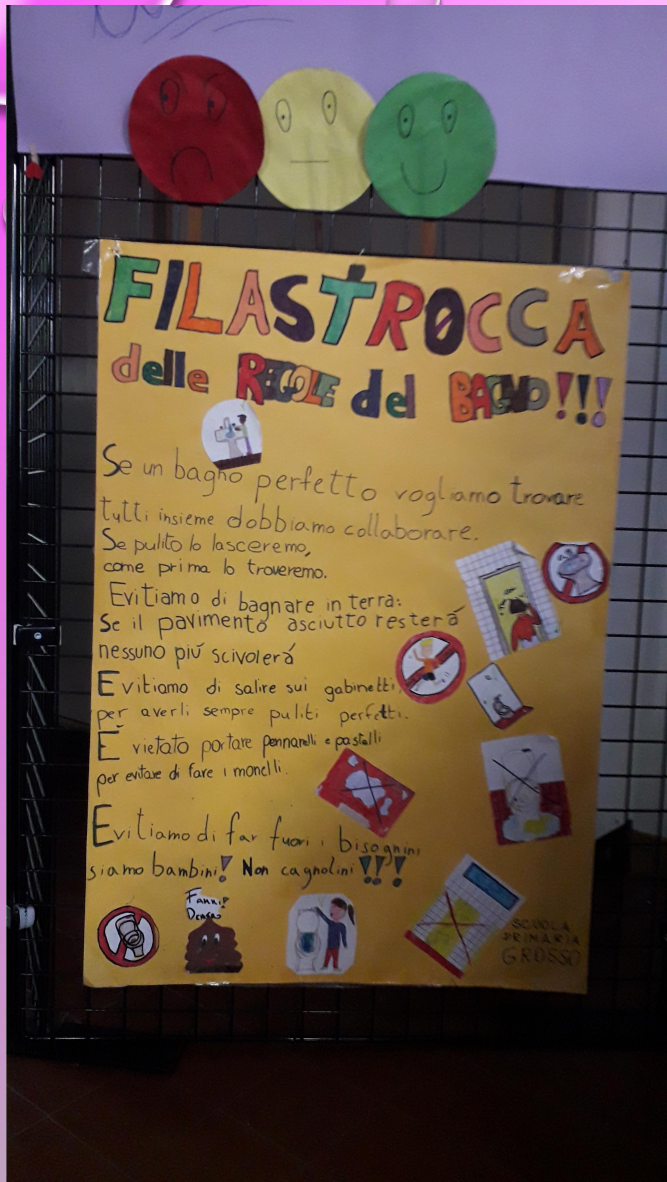 FILASTROCCA
delle REGOLE del BAGNO!!!
Se un bagno perfetto vogliamo trovare
tutti insieme dobbiamo collaborare.
Se pulito lo lasceremo,
come prima lo troveremo.
Evitiamo di bagnare in terra:
Se il pavimento asciutto resterá
nessuno piú scivolerá
Evitiamo di salire sui gabinetti,
per averli sempre puliti perfetti.
É vietato portare pennarelli e pastelli
per evitare di fare i monelli.
Evitiamo di far fuori i bisognini
siamo bambini! Non cagnolini!!!
FAMMI!
DENTRO
SCUOLA
PRIMARIA
GROSSO